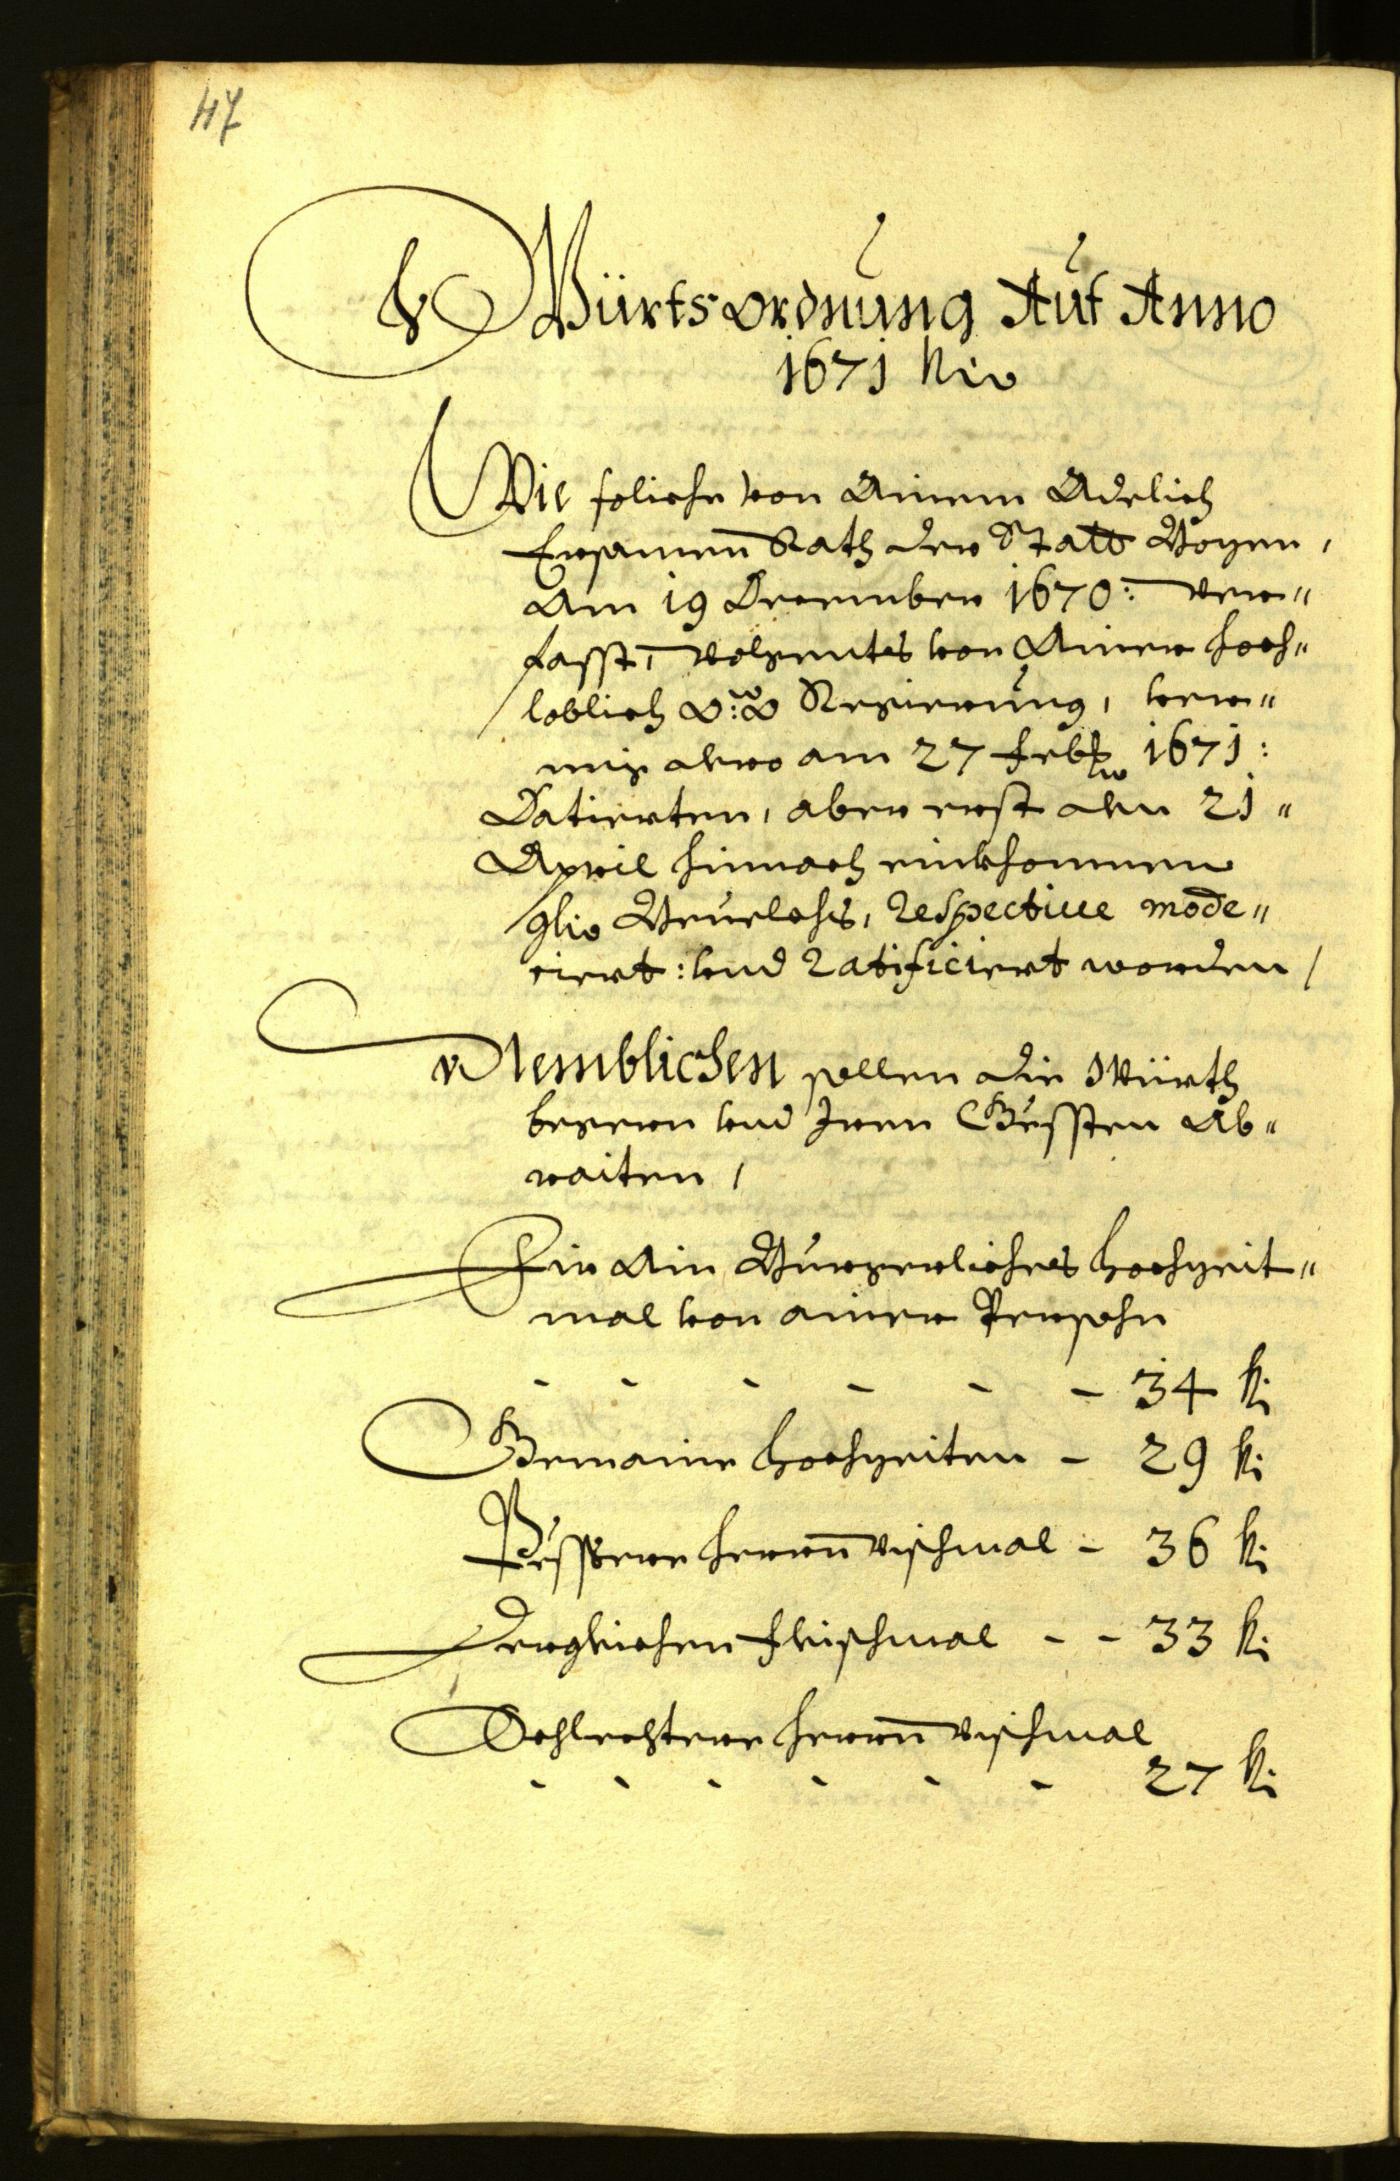 47
Würtsordnung Auf Anno
1671 hir
Wie soliche von Ainem Adelich
Ersamen Rath der Statt Bozen,
Am 19 December 1670: ver„
fasst, volgents von Ainer hoch„
loblich O:Ö Regierung, ver„
mig dero am 27 feb: 1671:
Datierten, aber erst den 21„
April hinnach einkhommen
Bevelchs, respectiue mode„
riert: vnd ratificiert worden /
Nemblichen sollen die Würth
begern vnd Iren Gessten Ab„
raiten /
Für Ain Burgerliches Hochzeit„
mal von ainer Persohn
- - - - - - 34 kr
Gemaine Hochzeiten - 29 kr
Pesstere herrn vischmal - 36 kr
Dergleichen fleischmal - - 33 kr
Schlechtere herrn vischmal
- - - - - - 27 kr